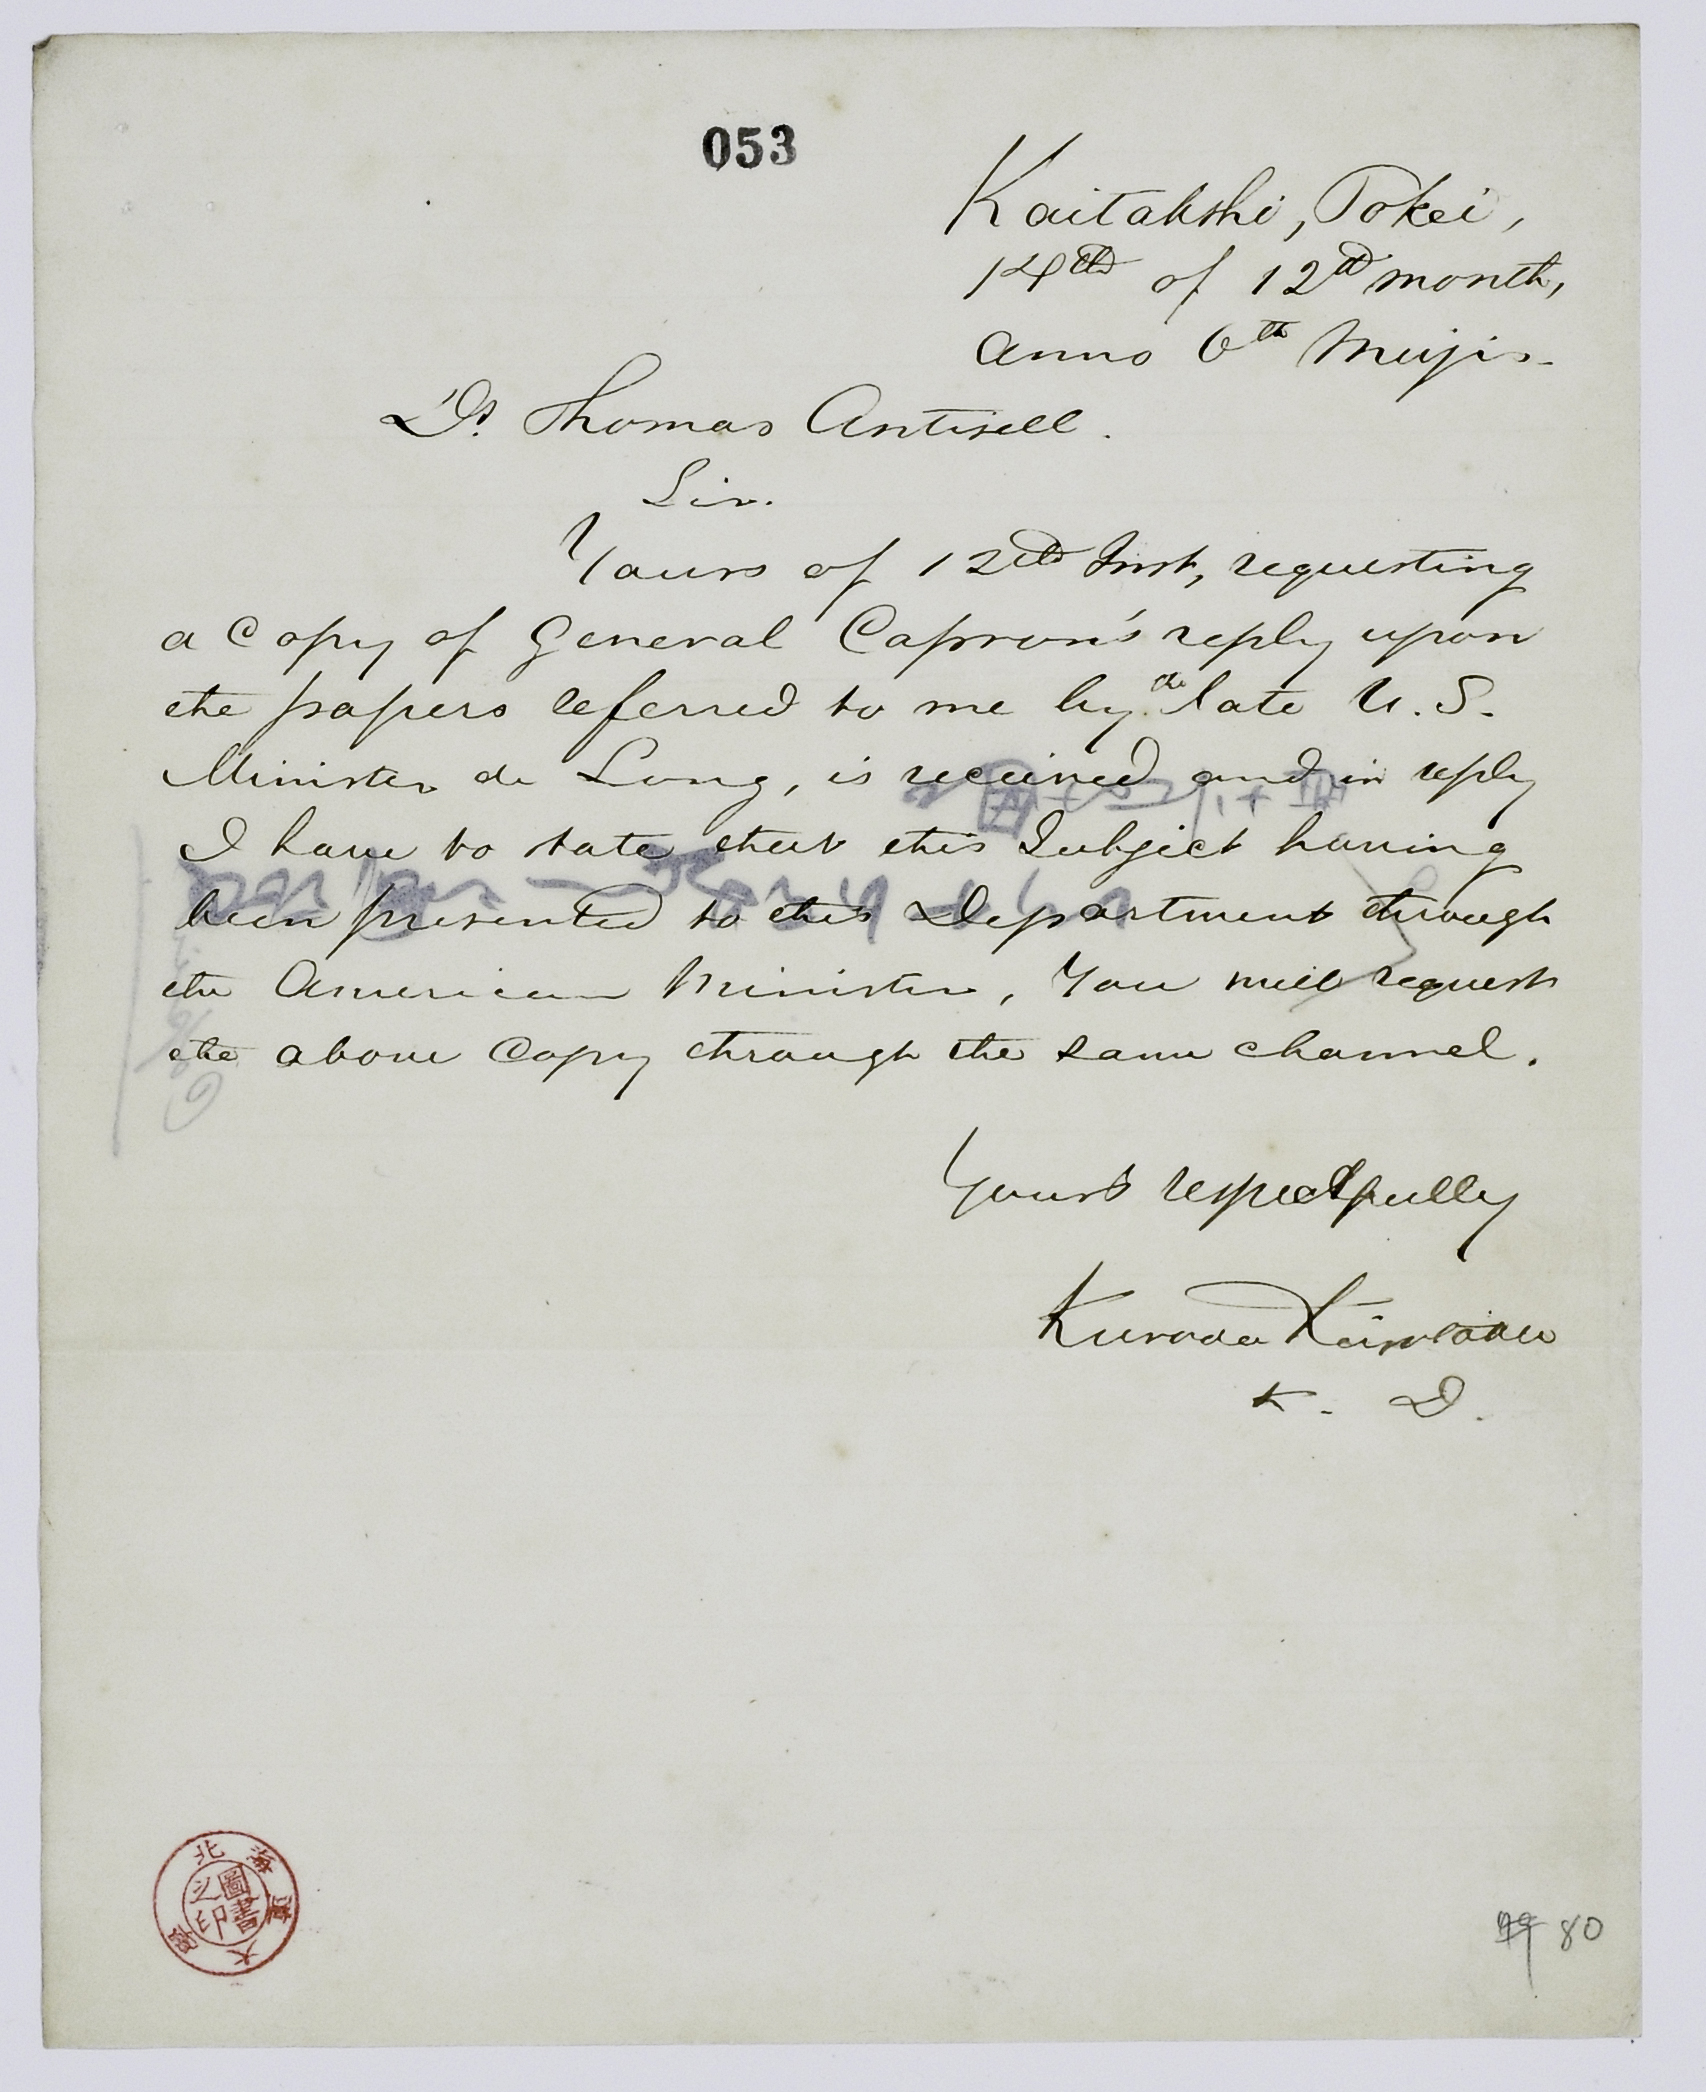 053
Kaitakshi, Tokei,
14th of 12th month,
anno 6th Meijis.
Dr. Thomas Antisell.
Sir.
Yours of 12th Inst, requesting
a Copy of General Capron's reply upon
the papers referred to me by the late U.S.
Minister de Long, is received and in reply
I have to state that this Subject having
been presented to this Department through
the American Minister, You will request
the above Copy through the same channel.
Yours respectfully
Kuroda Kiyotaka
K. D.
北海道大學
圖書之印
80